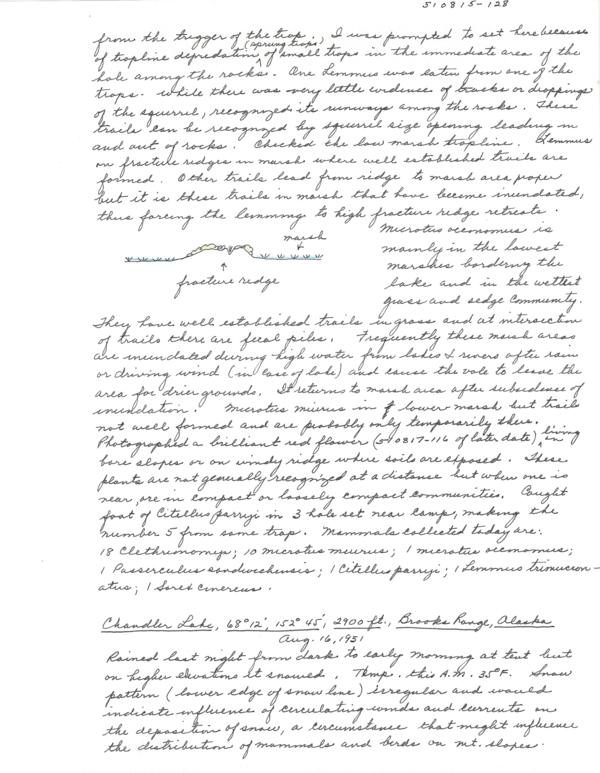 510815-128
from the trigger of the trap., I was prompted to set here because
of trapline depredation (sprung traps) of small traps in the immediate area of the
hole among the rocks. One Lemmus was eaten from one of the
traps. While there was very little evidence of tracks or droppings
of the squirrel, recognized its runways among the rocks. These
trails can be recognized by squirrel size opening leading in
and out of rocks. Checked the low marsh trapline. Lemmus
on fracture ridges in marsh where well established trails are
formed. Other trails lead from ridge to marsh area proper
but it is these trails in marsh that have become inundated,
thus forcing the lemming to high fracture ridge retreats.
marsh
fracture ridge
Microtus oeconomus is
mainly in the lowest
marshes bordering the
lake and in the wettest
grass and sedge community.
They have well established trails in grass and at intersection
of trails there are fecal piles. Frequently these marsh areas
are inundated during high water from lakes & rivers after rain
or driving wind (in case of lake) and cause the vole to leave the
area for drier grounds. It returns to marsh area after subsidence of
inundation. Microtus miurus in lower marsh but trails
not well formed and are probably only temporarily there.
Photographed a brilliant red flower (510817-116 of later date) living in
bare slopes or on windy ridge where soils are exposed. These
plants are not generally recognized at a distance but when one is
near, are in compact or loosely compact communities. Caught
foot of Citellus parryi in 3 hole set near camp, making the
number 5 from same trap. Mammals collected today are:
18 Clethrionomys; 10 microtus miurus; 1 microtus oeconomus;
1 Passerculus sandwichensis; 1 Citellus parryi; 1 Lemmus trimucron-
atus; 1 Sorex cinereus.
Chandler Lake, 68°12', 152°45', 2900 ft., Brooks Range, Alaska
Aug. 16, 1951
Rained last night from dark to early morning at tent but
on higher elevations it snowed. Temp. this A.M. 35°F. Snow
pattern (lower edge of snow line) irregular and would
indicate influence of circulating winds and currents on
the deposition of snow, a circumstance that might influence
the distribution of mammals and birds on mt. slopes.